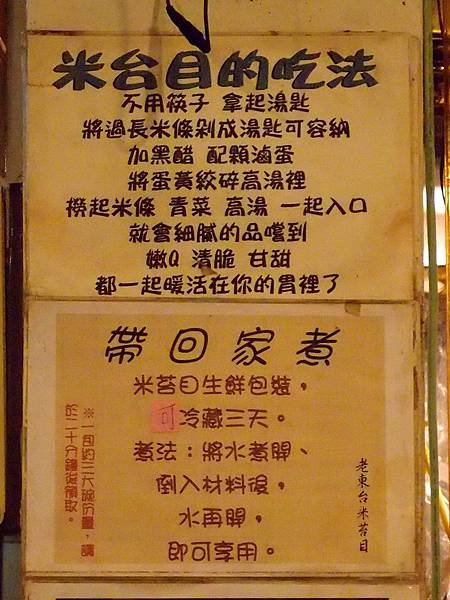 米台目的吃法
不用筷子 拿起湯匙
將過長米條剁成湯匙可容納
加黑醋 配顆滷蛋
將蛋黃絞碎高湯裡
撈起米條 青菜 高湯 一起入口
就會細膩的品嚐到
嫩Q 清脆 甘甜
都一起暖活在你的胃裡了
帶回家煮
米苔目生鮮包裝，
可冷藏三天。
煮法：將水煮開、
倒入材料後，
水再開，
即可享用。
老東台米苔目
※一包約二大碗份量，請
於二十分鐘後領取。